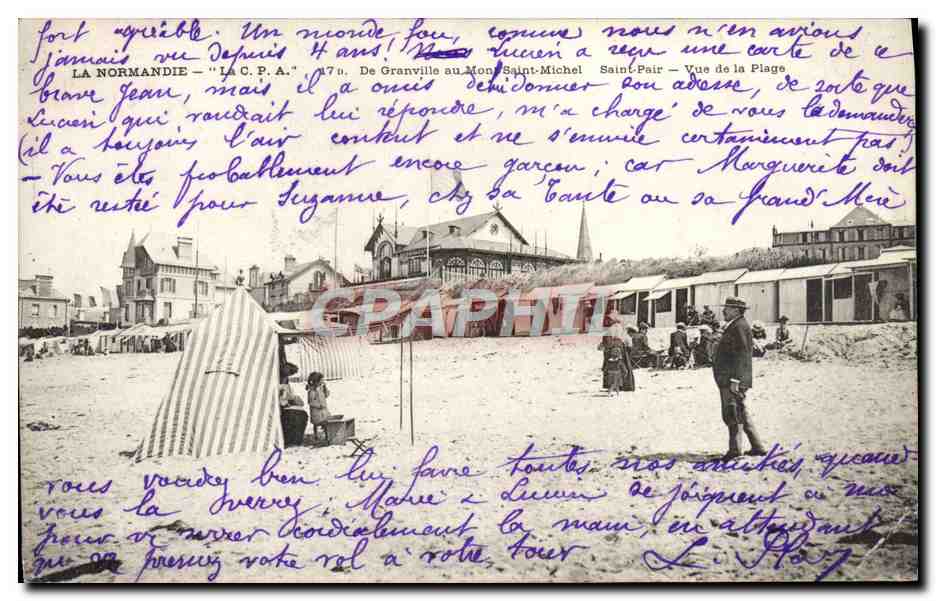 fort agréable. Un monde fou, comme nous n'en avions
jamais vu depuis 4 ans! Lucien a reçu une carte de ce
LA NORMANDIE – "La C. P. A." 17 D. De Granville au Mont Saint-Michel Saint-Pair – Vue de la Plage
brave Jean, mais il a omis de lui donner son adresse, de sorte que
Lucien qui voudrait lui répondre, m'a chargé de vous la demander
(il a toujours l'air content et ne s'ennuie certainement pas!)
– Vous êtes probablement encore garçon; car Marguerite doit
être restée pour Suzanne, chez sa Tante ou sa Grand'Mère
CPARAMA
vous voudrez bien lui faire toutes nos amitiés, quand
vous la verrez; Marie & Lucien se joignent à moi
pour vous serrer cordialement la main, en attendant
que vous preniez votre vol à votre tour